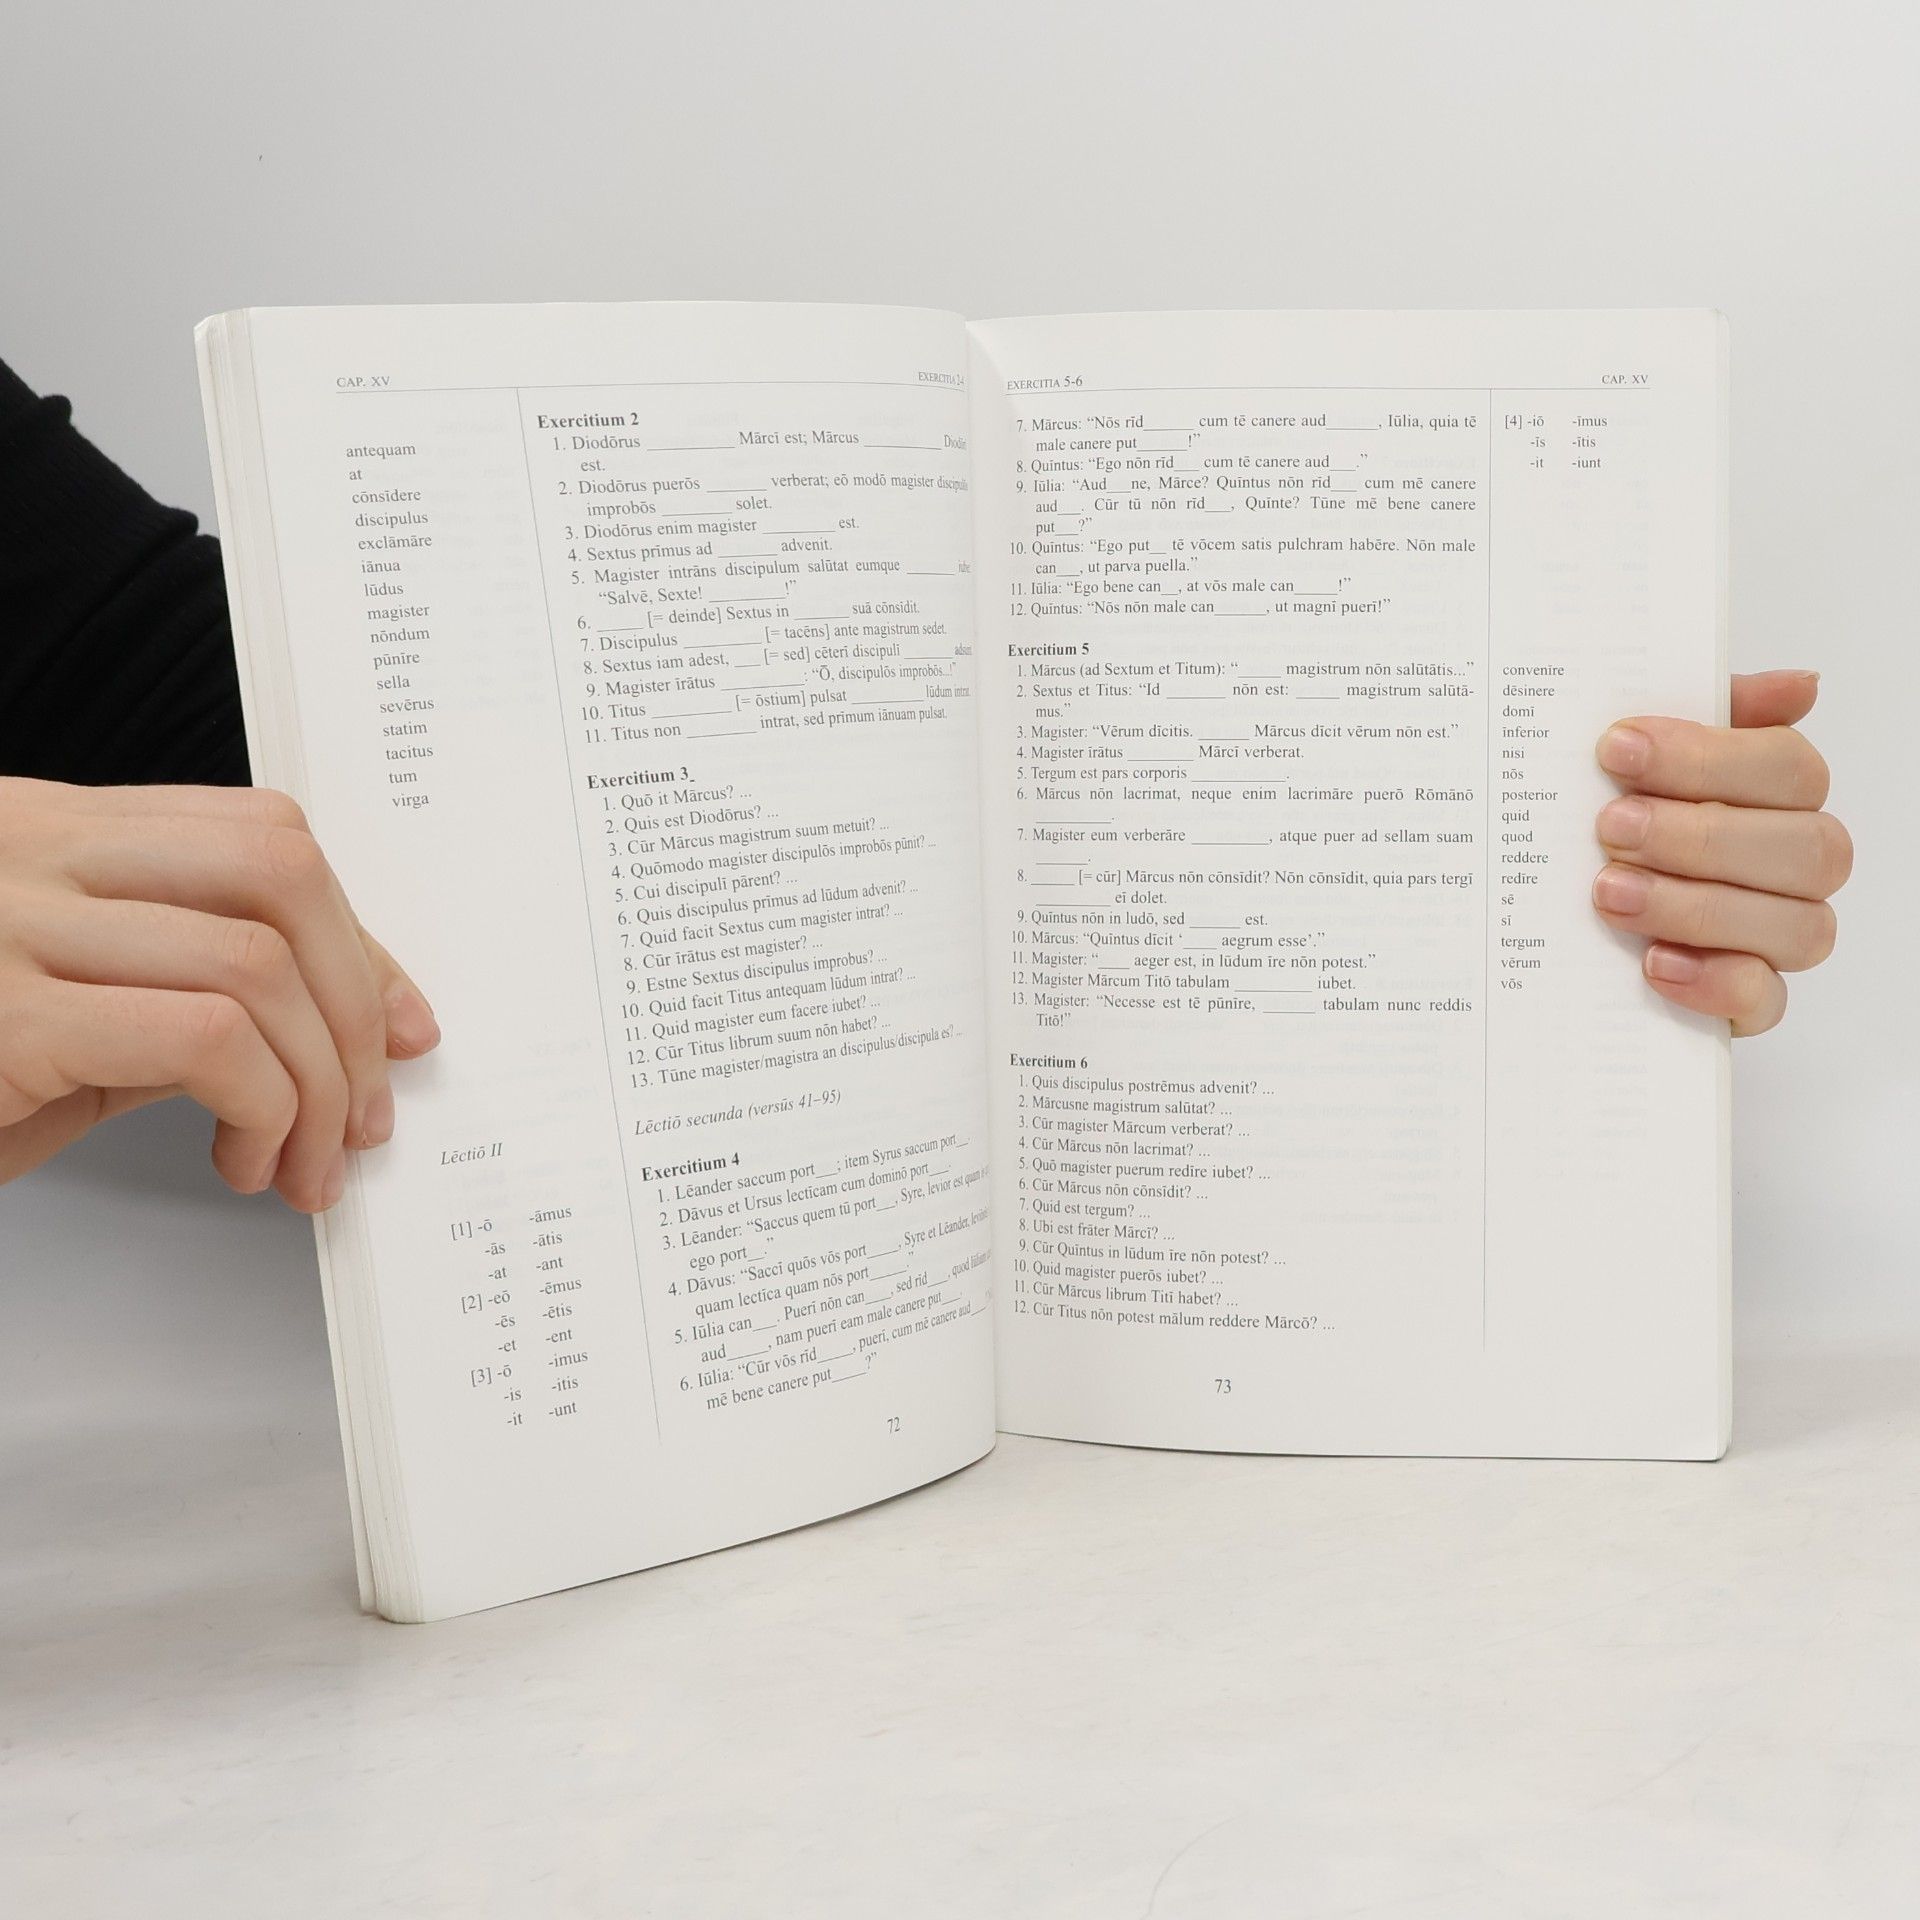 CAP. XV
EXERCITIA 2-4
antequam
at
cōnsīdere
discipulus
exclāmāre
iānua
lūdus
magister
nōndum
pūnīre
sella
sevērus
statim
tacitus
tum
virga
Exercitium 2
1. Diodōrus __________ Mārcī est; Mārcus _________ Diodōrī
est.
2. Diodōrus puerōs _______ verberat; eō modō magister discipulōs
improbōs ________ solet.
3. Diodōrus enim magister ________ est.
4. Sextus prīmus ad _______ advenit.
5. Magister intrāns discipulum salūtat eumque ______ iubet:
“Salvē, Sexte! _________!”
6. _____ [= deinde] Sextus in ______ suā cōnsīdit.
7. Discipulus _________ [= tacēns] ante magistrum sedet.
8. Sextus iam adest, ___ [= sed] cēterī discipulī ______ adsunt.
9. Magister īrātus __________: “Ō, discipulōs improbōs...!”
10. Titus _________ [= ōstium] pulsat _________ lūdum intrat.
11. Titus non ________ intrat, sed prīmum iānuam pulsat.
Exercitium 3
1. Quō it Mārcus? ...
2. Quis est Diodōrus? ...
3. Cūr Mārcus magistrum suum metuit? ...
4. Quōmodo magister discipulōs improbōs pūnit? ...
5. Cui discipulī pārent? ...
6. Quis discipulus prīmus ad lūdum advenit? ...
7. Quid facit Sextus cum magister intrat? ...
8. Cūr īrātus est magister? ...
9. Estne Sextus discipulus improbus? ...
10. Quid facit Titus antequam lūdum intrat? ...
11. Quid magister eum facere iubet? ...
12. Cūr Titus librum suum nōn habet? ...
13. Tūne magister/magistra an discipulus/discipula es? ...
Lēctiō secunda (versūs 41–95)
Lēctiō II
[1] -ō -āmus
-ās -ātis
-at -ant
[2] -eō -ēmus
-ēs -ētis
-et -ent
[3] -ō -imus
-is -itis
-it -unt
Exercitium 4
1. Lēander saccum port__; item Syrus saccum port__.
2. Dāvus et Ursus lectīcam cum dominō port___.
3. Lēander: “Saccus quem tū port__, Syre, levior est quam is
ego port__.”
4. Dāvus: “Saccī quōs vōs port____, Syre et Lēander,
quam lectīca quam nōs port_____.”
5. Iūlia can___. Puerī nōn can___, sed rīd___, quod Iūliam
aud_____, nam puerī eam male canere put___.
6. Iūlia: “Cūr vōs rīd____, puerī, cum mē canere aud___?
mē bene canere put____?”
72
EXERCITIA 5-6
CAP. XV
7. Mārcus: “Nōs rīd______ cum tē canere aud______, Iūlia, quia tē
male canere put______!”
8. Quīntus: “Ego nōn rīd___ cum tē canere aud___.”
9. Iūlia: “Aud___ne, Mārce? Quīntus nōn rīd___ cum mē canere
aud___. Cūr tū nōn rīd___, Quīnte? Tūne mē bene canere
put___?”
10. Quīntus: “Ego put__ tē vōcem satis pulchram habēre. Nōn male
can___, ut parva puella.”
11. Iūlia: “Ego bene can__, at vōs male can_____!”
12. Quīntus: “Nōs nōn male can______, ut magnī puerī!”
[4] -iō -īmus
-īs -ītis
-it -iunt
Exercitium 5
1. Mārcus (ad Sextum et Titum): “_____ magistrum nōn salūtātis...”
2. Sextus et Titus: “Id _______ nōn est: _____ magistrum salūtā-
mus.”
3. Magister: “Vērum dīcitis. ______ Mārcus dīcit vērum nōn est.”
4. Magister īrātus ________ Mārcī verberat.
5. Tergum est pars corporis ___________.
6. Mārcus nōn lacrimat, neque enim lacrimāre puerō Rōmānō
_________.
7. Magister eum verberāre _________, atque puer ad sellam suam
______.
8. _____ [= cūr] Mārcus nōn cōnsīdit? Nōn cōnsīdit, quia pars tergī
_________ eī dolet.
9. Quīntus nōn in ludō, sed ______ est.
10. Mārcus: “Quīntus dīcit ‘____ aegrum esse’.”
11. Magister: “____ aeger est, in lūdum īre nōn potest.”
12. Magister Mārcum Titō tabulam _________ iubet.
13. Magister: “Necesse est tē pūnīre, ______ tabulam nunc reddis
Titō!”
convenīre
dēsinere
domī
īnferior
nisi
nōs
posterior
quid
quod
reddere
redīre
sē
sī
tergum
vērum
vōs
Exercitium 6
1. Quis discipulus postrēmus advenit? ...
2. Mārcusne magistrum salūtat? ...
3. Cūr magister Mārcum verberat? ...
4. Cūr Mārcus nōn lacrimat? ...
5. Quō magister puerum redīre iubet? ...
6. Cūr Mārcus nōn cōnsīdit? ...
7. Quid est tergum? ...
8. Ubi est frāter Mārcī? ...
9. Cūr Quīntus in lūdum īre nōn potest? ...
10. Quid magister puerōs iubet? ...
11. Cūr Mārcus librum Titī habet? ...
12. Cūr Titus nōn potest mālum reddere Mārcō? ...
73